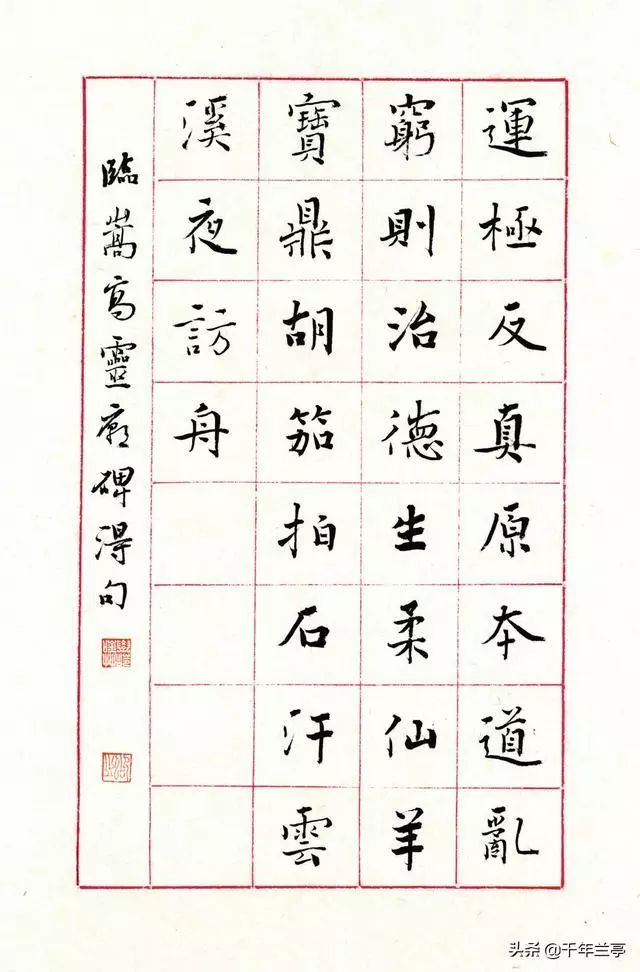 運極反真原本道亂
窮則治德生柔仙羊
寶鼎胡笳拍石汗雲
溪夜訪舟
臨嵩高靈廟碑得句
头条@千年兰亭